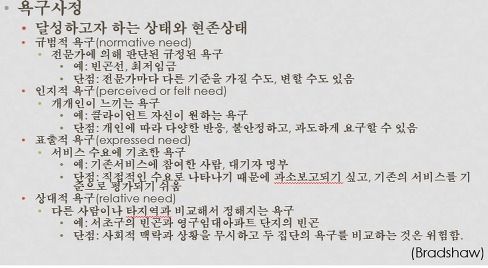 욕구사정
달성하고자 하는 상태와 현존상태
규범적 욕구(normative need)
전문가에 의해 판단된 규정된 욕구
예: 빈곤선, 최저임금
단점: 전문가마다 다른 기준을 가질 수도, 변할 수도 있음
인지적 욕구(perceived or felt need)
개개인이 느끼는 욕구
예: 클라이언트 자신이 원하는 욕구
단점: 개인에 따라 다양한 반응, 불안정하고, 과도하게 요구할 수 있음
표출적 욕구(expressed need)
서비스 수요에 기초한 욕구
예: 기존서비스에 참여한 사람, 대기자 명부
단점: 직접적인 수요로 나타나기 때문에 과소보고되기 싶고, 기존의 서비스를 기
준으로 평가되기 쉬움
상대적 욕구(relative need)
다른 사람이나 타지역과 비교해서 정해지는 욕구
예: 서초구의 빈곤과 영구임대아파트 단지의 빈곤
단점: 사회적 맥락과 상황을 무시하고 두 집단의 욕구를 비교하는 것은 위험함.
(Bradshaw)